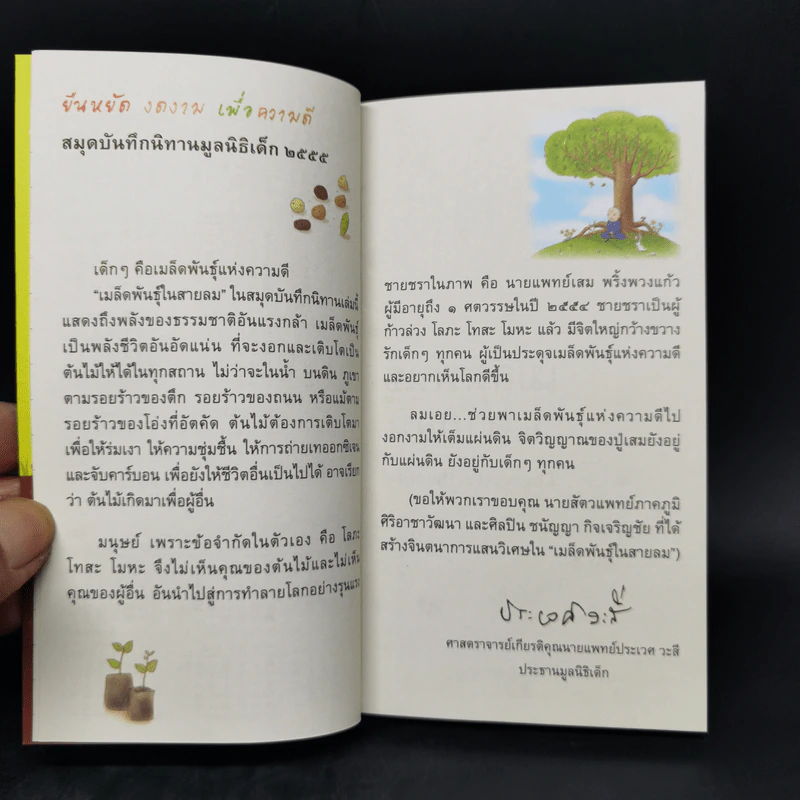 ยืนหยัด งดงาม เพื่อความดี
สมุดบันทึกนิทานมูลนิธิเด็ก ๒๕๕๕
เด็กๆ คือเมล็ดพันธุ์แห่งความดี
“เมล็ดพันธุ์ในสายลม” ในสมุดบันทึกนิทานเล่มนี้
แสดงถึงพลังของธรรมชาติอันแรงกล้า เมล็ดพันธุ์
เป็นพลังชีวิตอันอัดแน่น ที่จะงอกและเติบโตเป็น
ต้นไม้ให้ได้ในทุกสถาน ไม่ว่าจะในน้ำ บนดิน ภูเขา
ตามรอยร้าวของตึก รอยร้าวของถนน หรือแม้ตาม
รอยร้าวของโอ่งที่อัตคัด ต้นไม้ต้องการเติบโตมา
เพื่อให้ร่มเงา ให้ความชุ่มชื้น ให้การถ่ายเทออกซิเจน
และจับคาร์บอน เพื่อยังให้ชีวิตอื่นเป็นไปได้ อาจเรียก
ว่า ต้นไม้เกิดมาเพื่อผู้อื่น
มนุษย์ เพราะข้อจำกัดในตัวเอง คือ โลภะ
โทสะ โมหะ จึงไม่เห็นคุณของต้นไม้และไม่เห็น
คุณของผู้อื่น อันนำไปสู่การทำลายโลกอย่างรุนแรง
ชายชราในภาพ คือ นายแพทย์เสม พริ้งพวงแก้ว
ผู้มีอายุถึง ๑ ศตวรรษในปี ๒๕๕๔ ชายชราเป็นผู้
ก้าวล่วง โลภะ โทสะ โมหะ แล้ว มีจิตใหญ่กว้างขวาง
รักเด็กๆ ทุกคน ผู้เป็นประดุจเมล็ดพันธุ์แห่งความดี
และอยากเห็นโลกดีขึ้น
ลมเอย...ช่วยพาเมล็ดพันธุ์แห่งความดีไป
งอกงามให้เต็มแผ่นดิน จิตวิญญาณของปู่เสมยังอยู่
กับแผ่นดิน ยังอยู่กับเด็กๆ ทุกคน
(ขอให้พวกเราขอบคุณ นายสัตวแพทย์ภาคภูมิ
ศิริอาชาวัฒนา และศิลปิน ชนัญญา กิจเจริญชัย ที่ได้
สร้างจินตนาการแสนวิเศษใน “เมล็ดพันธุ์ในสายลม”)
ประเวศ วะสี
ศาสตราจารย์เกียรติคุณนายแพทย์ประเวศ วะสี
ประธานมูลนิธิเด็ก